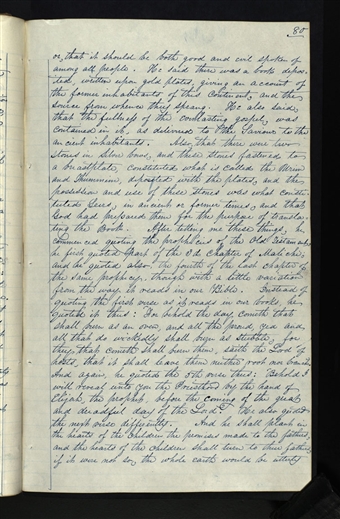 80
or, that it should be both good and evil spoken of
among all people. He said there was a book depos-
ited, written upon gold plates, giving an account of
the former inhabitants of this Continent, and the
source from whence they sprang. He also said
that the fullness of the everlasting gospel, was
contained in it, as delivered by the Saviour to the
ancient inhabitants. Also, that there were two
Stones in Silver bows, and these stones fastened to
a breastplate, constituted what is called the Urim
and Thummim, deposited with the plates, and the
possession and use of these stones was what consti-
tuted Seers, in ancient or former times, and that
God had prepared them for the purpose of transla-
ting the Book. After telling me these things, he
commenced quoting the prophecies of the Old Testament,
he first quoted part of the Chapter of
and he quoted also, the fourth or the last chapter of
the same prophecy, though with a little variation
from the way it reads in our Bible. Instead of
quoting the first verse as it reads in our books, he
quoted it thus: For behold the day cometh that
shall burn as an oven, and all the proud, yea and
all that do wickedly shall burn as stubble, for
they that cometh shall burn them, saith the Lord of
hosts, that it shall leave them neither root nor
And again, he quoted the 5th verse thus: Behold I
will reveal unto you the Priesthood by the hand of
Elijah, the prophet, before the coming of the great
and dreadful day of the Lord. He also quoted
the next verse differently. And he shall plant in
the hearts of the children the promises made to the fathers,
and the hearts of the children shall turn to their fathers,
if it were not so, the whole earth would be utterly